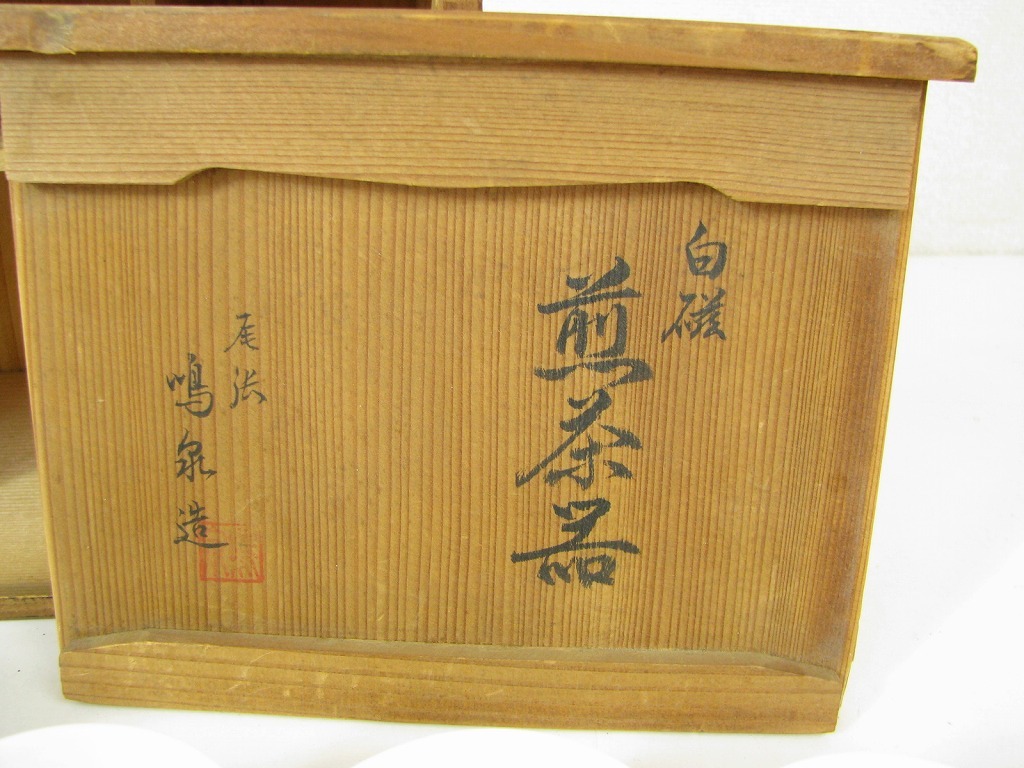 白磁
煎茶器
尾張
鳴泉造